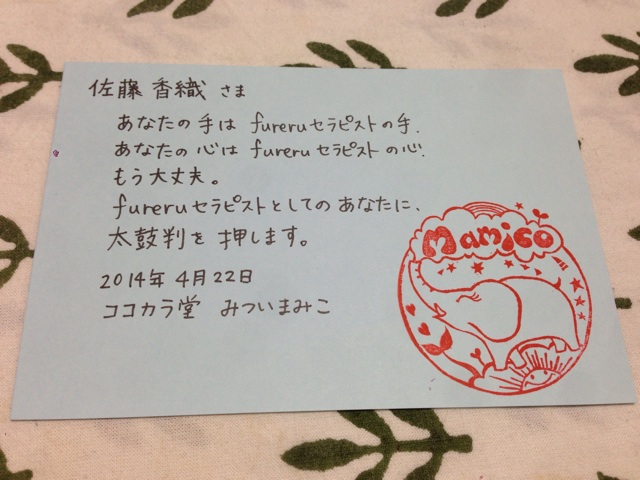 佐藤 香織 さま
あなたの 手は fureruセラピストの手.
あなたの 心は fureruセラピストの心.
もう大丈夫。
fureruセラピストとしての あなたに、
太鼓判を 押します。
2014年 4月22日
ココカラ堂 みついまみこ
mamico